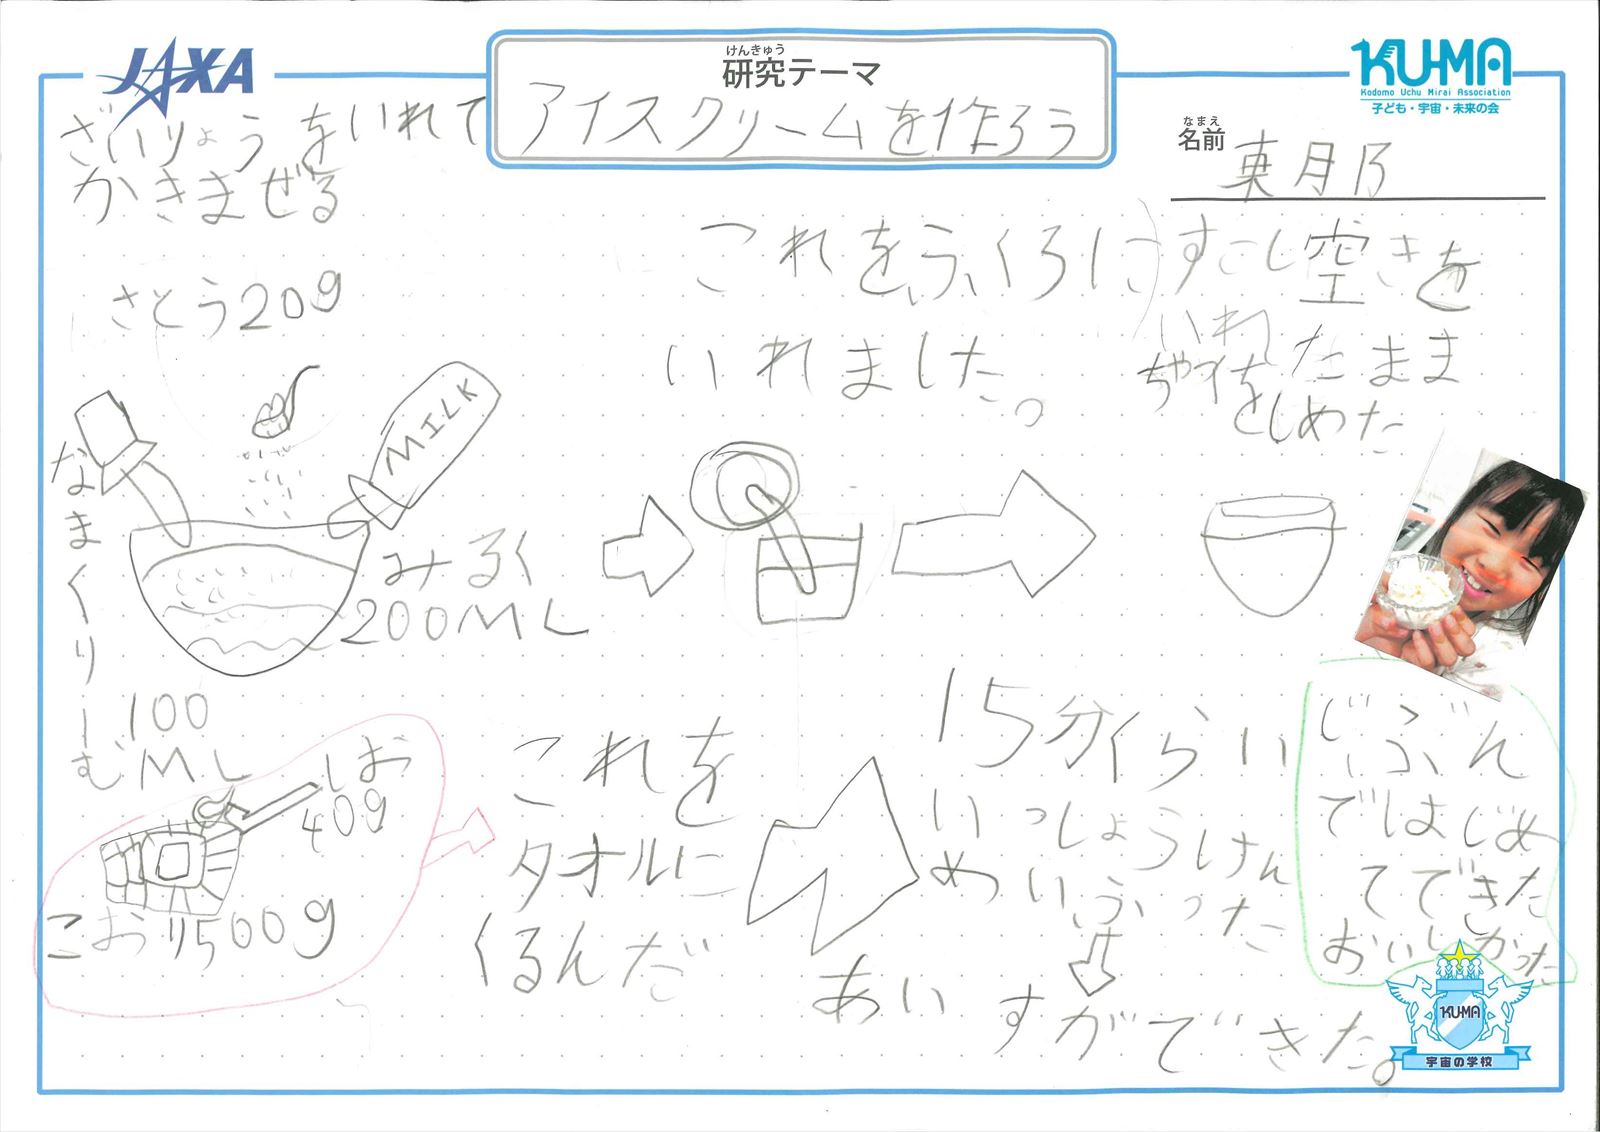 JAXA
けんきゅう
研究テーマ
アイスクリームを作ろう
KU-MA
Kodomo Uchu Mirai Association
子ども・宇宙・未来の会
なまえ
名前
ざいりょうをいれて
かきまぜる
さとう20g
MILK
なまくりーむ
100
ML
みるく
200ML
これをふくろに
いれました。
すこし空きを
いれたまま
ちゃイを
としめた
しお
40g
こおり500g
これを
タオルに
くるんだ
15分くらい
いっしょうけん
めいふった
あいすができた。
じぶん
ではじめ
てできた
おいしかった
KU-MA
宇宙の学校